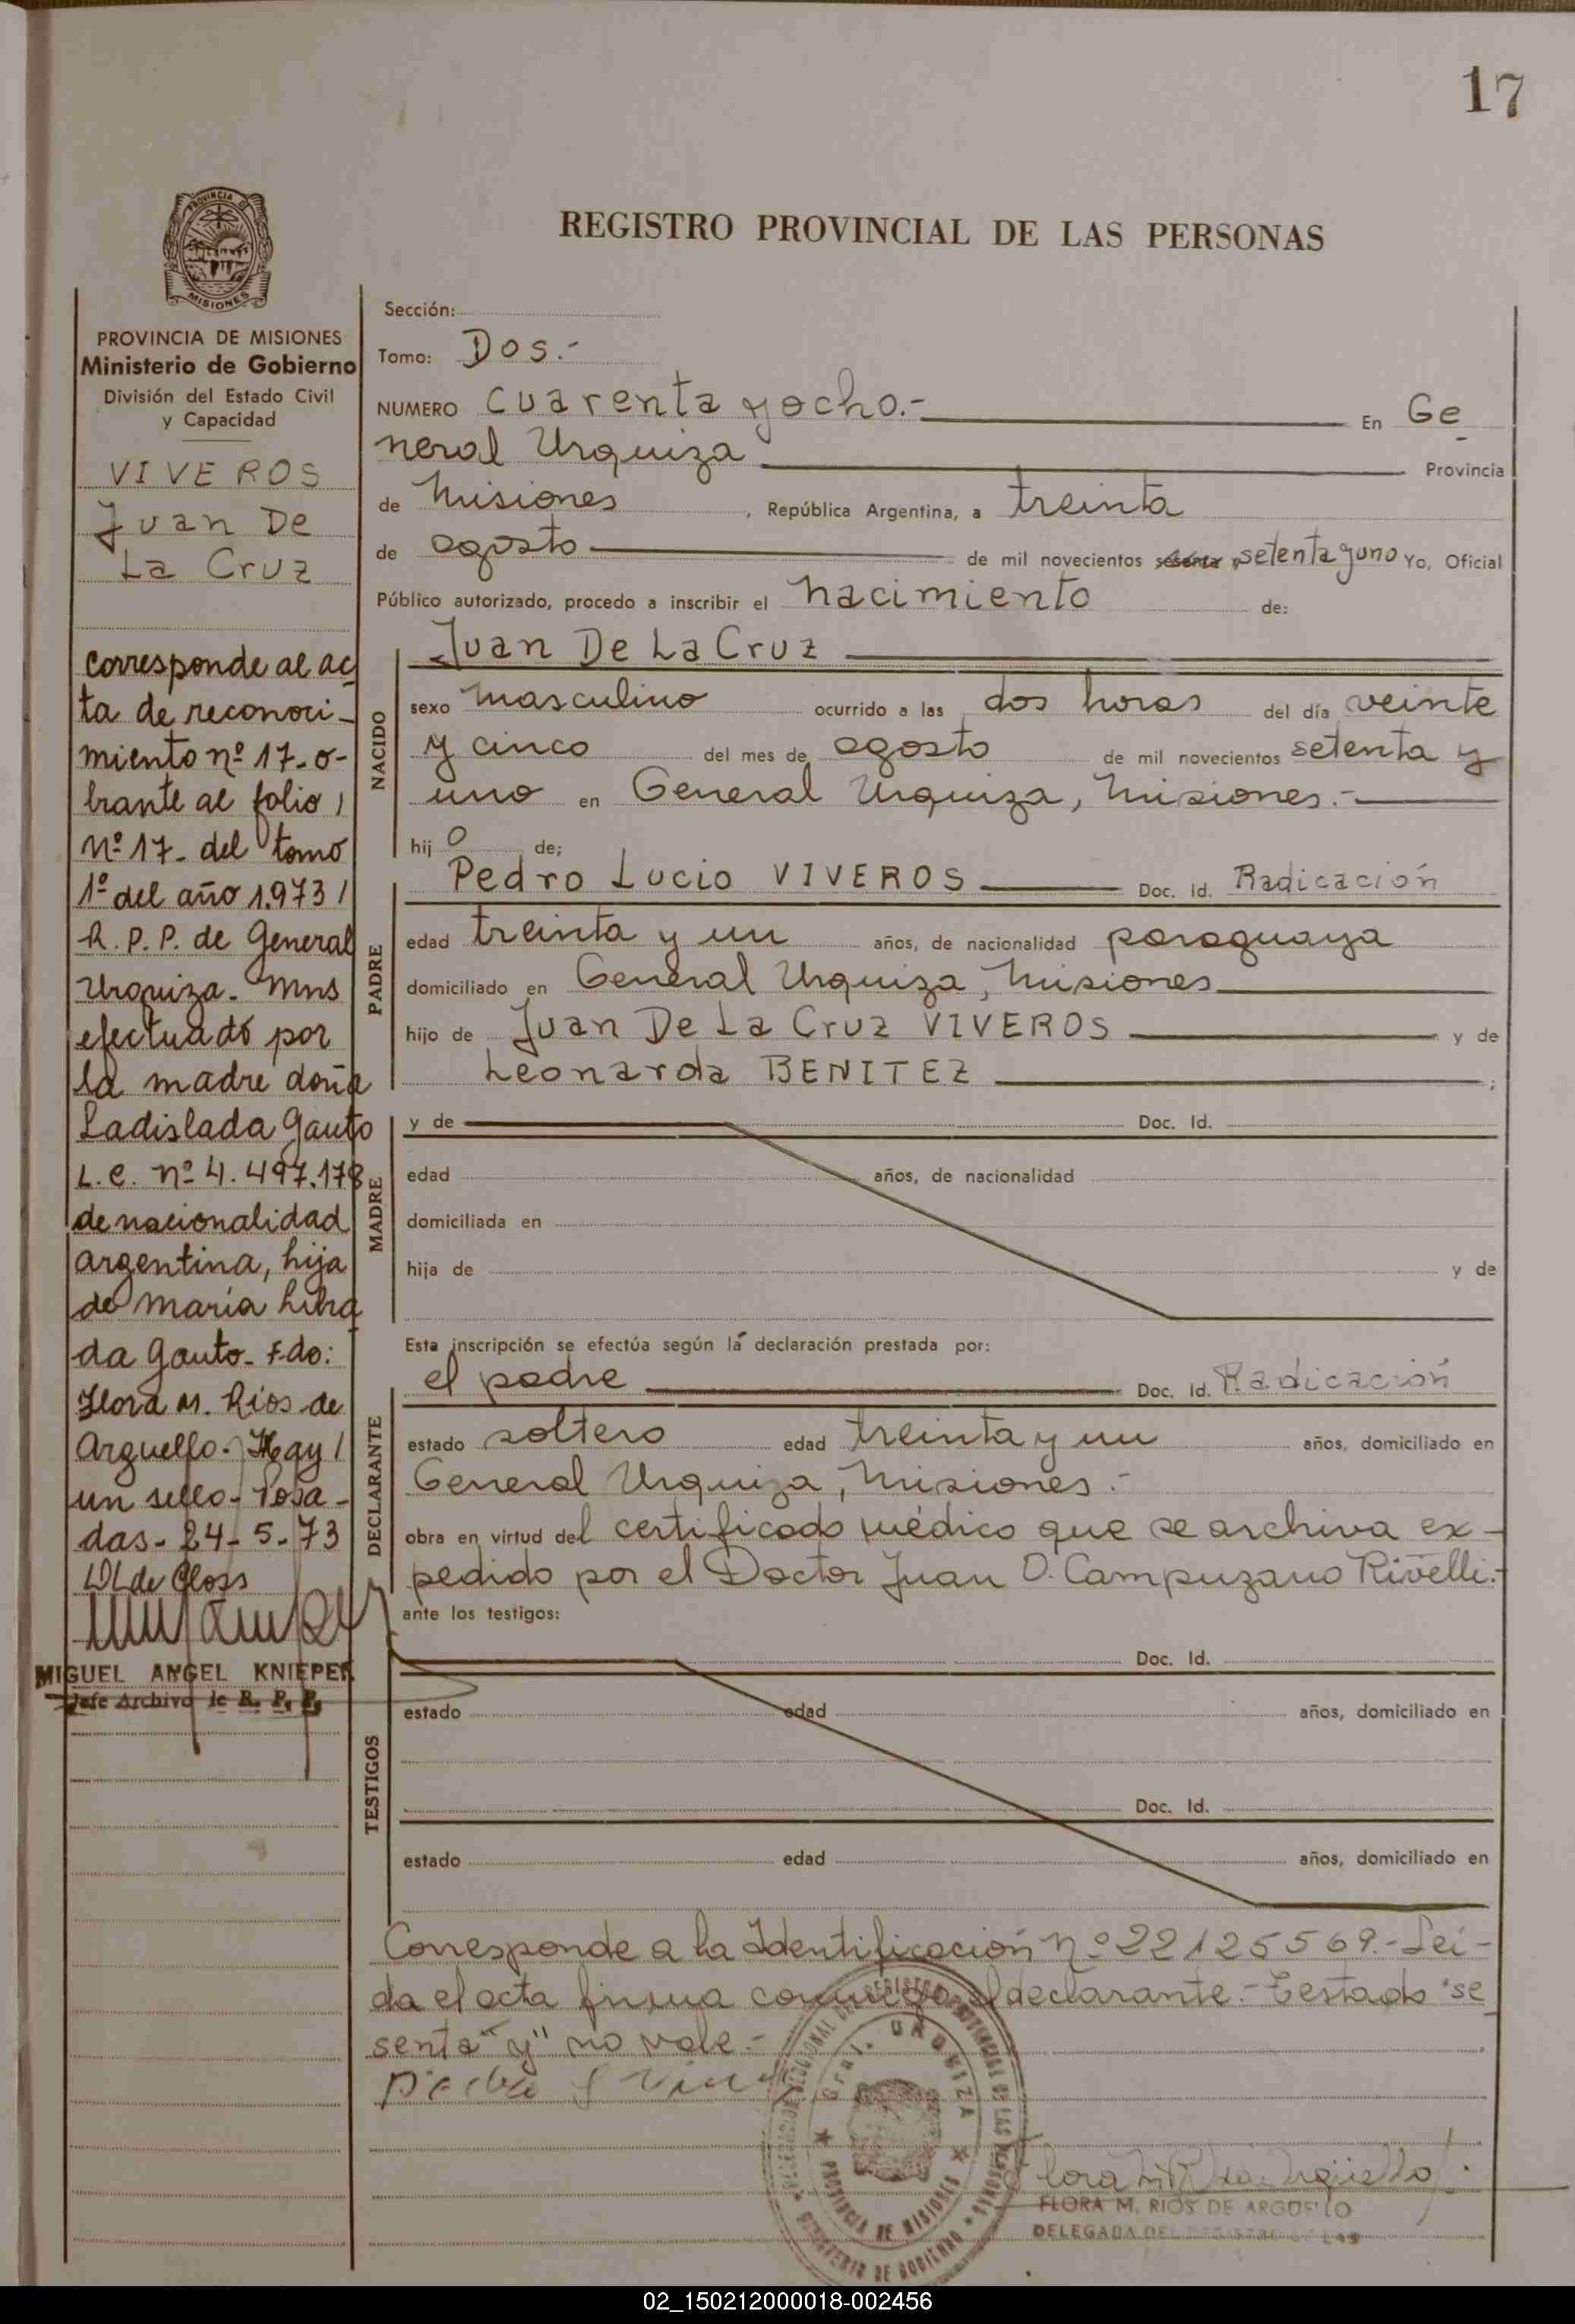 17
PROVINCIA DE
MISIONES
REGISTRO PROVINCIAL DE LAS PERSONAS
PROVINCIA DE MISIONES
Ministerio de Gobierno
División del Estado Civil
y Capacidad
VIVEROS
Juan De
La Cruz
corresponde al ac
ta de reconoci-
miento nº 17-o-
brante al folio /
Nº 17- del tomo
1º del año 1.973 /
R. P. P. de General
Urquiza- Mns
efectuado por
la madre doña
Ladislada Gauto
L.C. nº 4.497.178
de nacionalidad
argentina, hija
de María Libra
da Gauto- Fdo:
Flora M. Ríos de
Arguello- Hay /
un sello- Posa-
das- 24-5-73
MIGUEL ANGEL KNIEPER
Jefe Archivo de R. P. P.
Sección:
Tomo: Dos.-
NUMERO cuarenta y ocho.- En Ge
neral Urquiza Provincia
de Misiones , República Argentina, a treinta
de agosto de mil novecientos sesenta y setenta y uno Yo, Oficial
Público autorizado, procedo a inscribir el nacimiento de:
NACIDO
Juan De La Cruz
sexo masculino ocurrido a las dos horas del día veinte
y cinco del mes de agosto de mil novecientos setenta y
uno en General Urquiza, Misiones.-
hij o de;
PADRE
Pedro Lucio VIVEROS Doc. Id. Radicación
edad treinta y un años, de nacionalidad paraguaya
domiciliado en General Urquiza, Misiones
hijo de Juan De La Cruz VIVEROS y de
Leonarda BENITEZ ;
MADRE
y de Doc. Id.
edad años, de nacionalidad
domiciliada en
hija de y de
Esta inscripción se efectúa según la declaración prestada por:
DECLARANTE
el padre Doc. Id. Radicación
estado soltero edad treinta y un años, domiciliado en
General Urquiza, Misiones.-
obra en virtud del certificado médico que se archiva ex-
pedido por el Doctor Juan O. Campuzano Rivelli.-
ante los testigos:
TESTIGOS
Doc. Id.
estado edad años, domiciliado en
Doc. Id.
estado edad años, domiciliado en
Corresponde a la Identificación Nº 22125569.- Leí-
da el acta firma conmigo el declarante.- Testado "se
senta" y" no vale.-
Gral. URQUIZA
PROVINCIA DE MISIONES
MINISTERIO DE GOBIERNO
FLORA M. RIOS DE ARGUELLO
DELEGADA DEL REGISTRO DE LAS
02_150212000018-002456